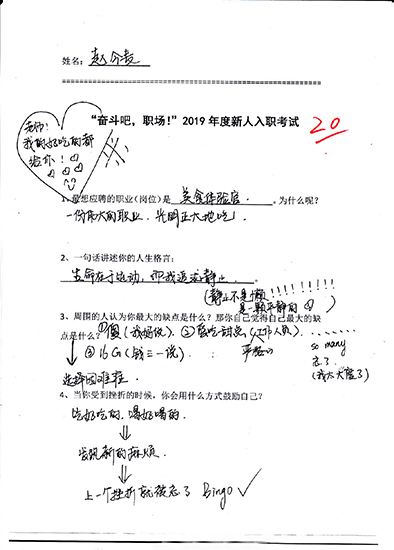 姓名：赵今麦
"奋斗吧，职场！"2019 年度新人入职考试
20
老师！
我的好吃的都
给你！
1、最想应聘的职业（岗位）是 美食体验官 。为什么呢？
一份伟大的职业，光明正大地吃！
2、一句话讲述你的人生格言：
生命在于运动，而我追求静止 。
（静止不是懒！！！！！！！！
是一颗平静的
3、周围的人认为你最大的缺点是什么？那你自己觉得自己最大的缺
点是什么？①傻（我好像）. ②爱吃甜点（工作人员）.......
③ 16G（钱三一说）
so many
忘了
（我太大度了）
选择困难症
4、当你受到挫折的时候，你会用什么方式鼓励自己？
吃好吃的，喝好喝的
发现新的麻烦
上一个挫折就被忘了 Bingo